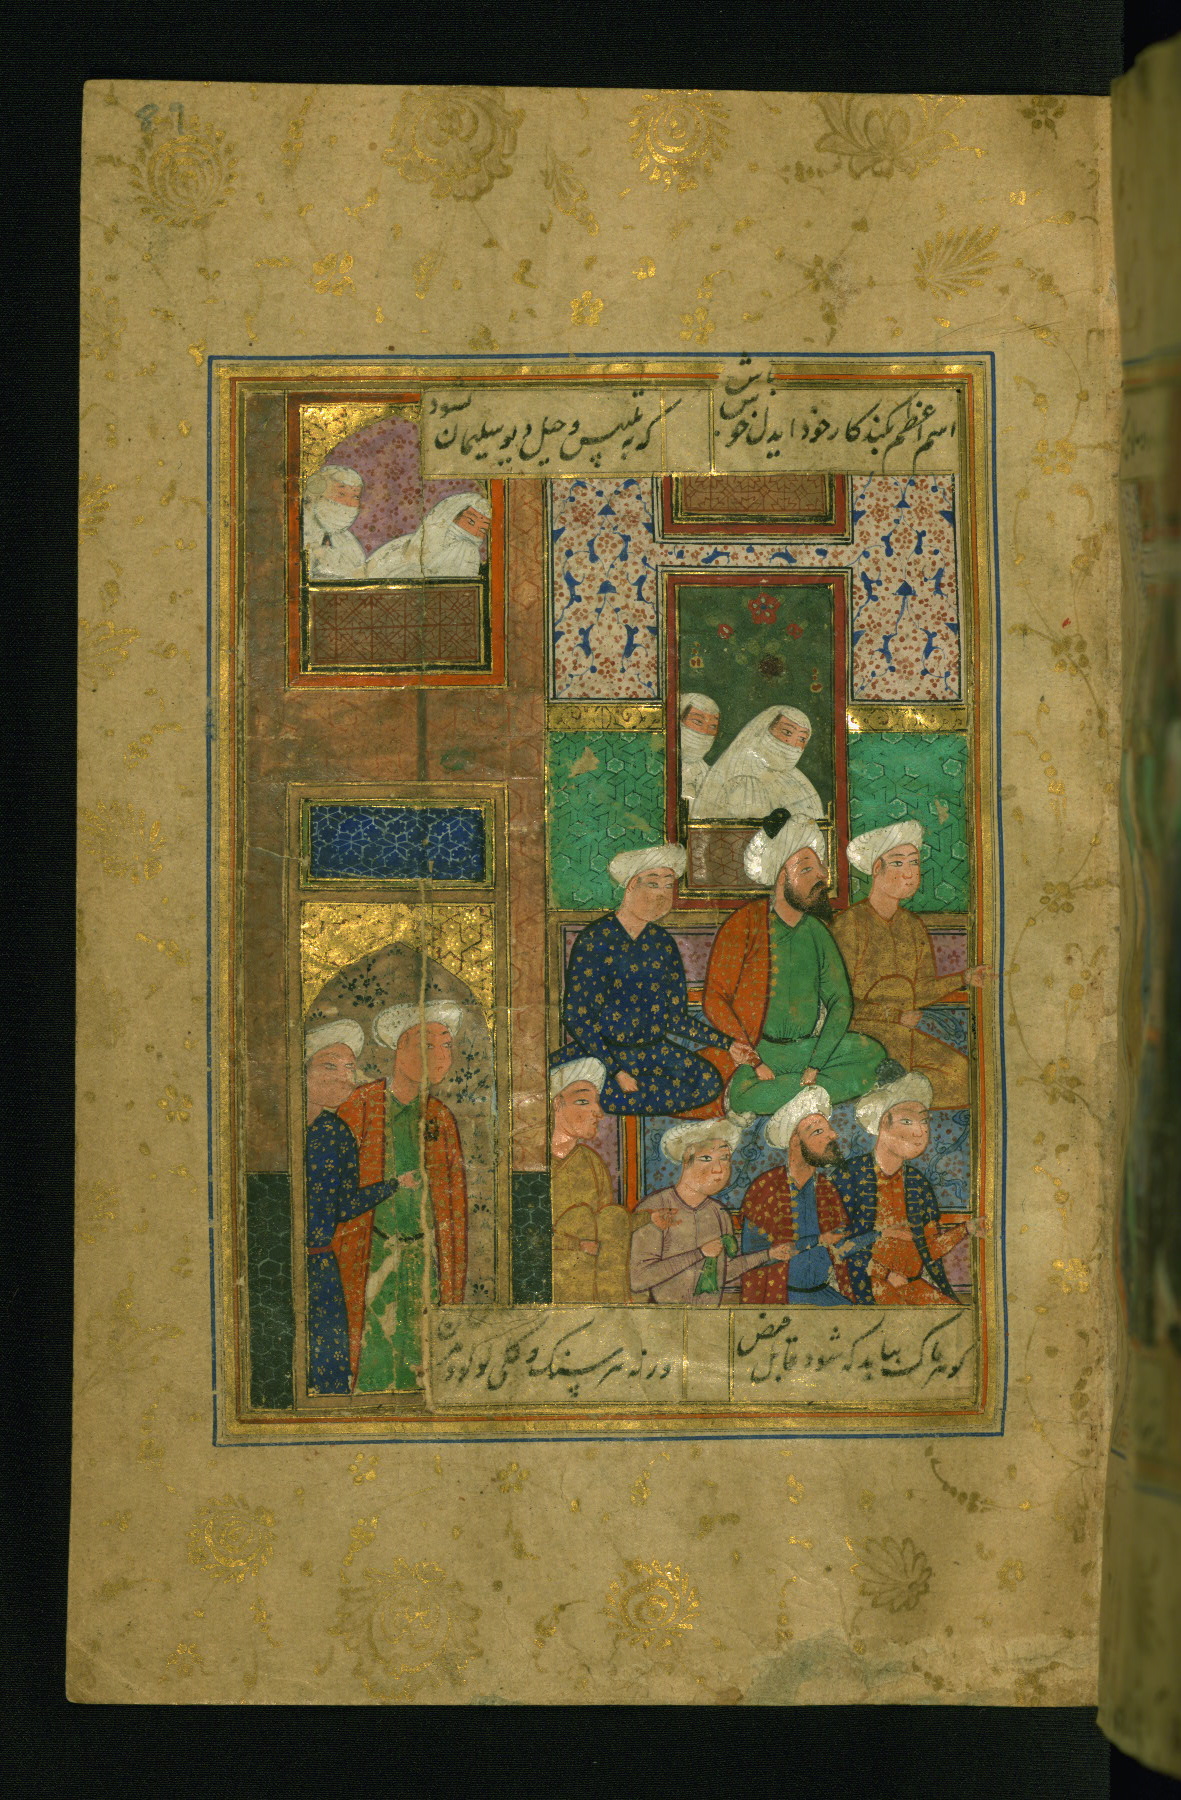 89
اسم اعظم بکند کار خود ایدل خوش باش
که به تلبیس و حیل دیو سلیمان نشود
کوهر پاک بباید که شود قابل فیض
ورنه هر سنک و کلی لولو و